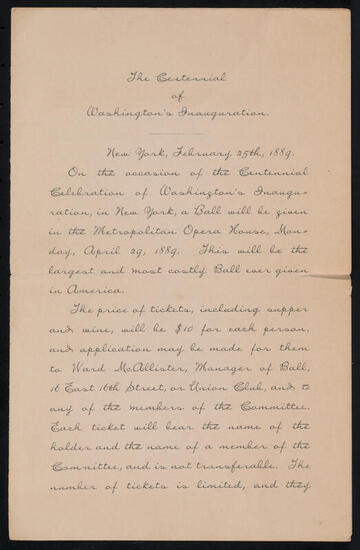 The Centennial
of
Washington's Inauguration.
New York, February 25th, 1889.
On the occasion of the Centennial
Celebration of Washington's Inaugu=
ration, in New York, a Ball will be given
in the Metropolitan Opera House, Mon=
day, April 29, 1889. This will be the
largest and most costly Ball ever given
in America.
The price of tickets, including supper
and wine, will be $10 for each person,
and application may be made for them
to Ward McAllister, Manager of Ball,
16 East 16th Street, or Union Club, and to
any of the members of the Committee.
Each ticket will bear the name of the
holder and the name of a member of the
Committee, and is not transferable. The
number of tickets is limited, and they